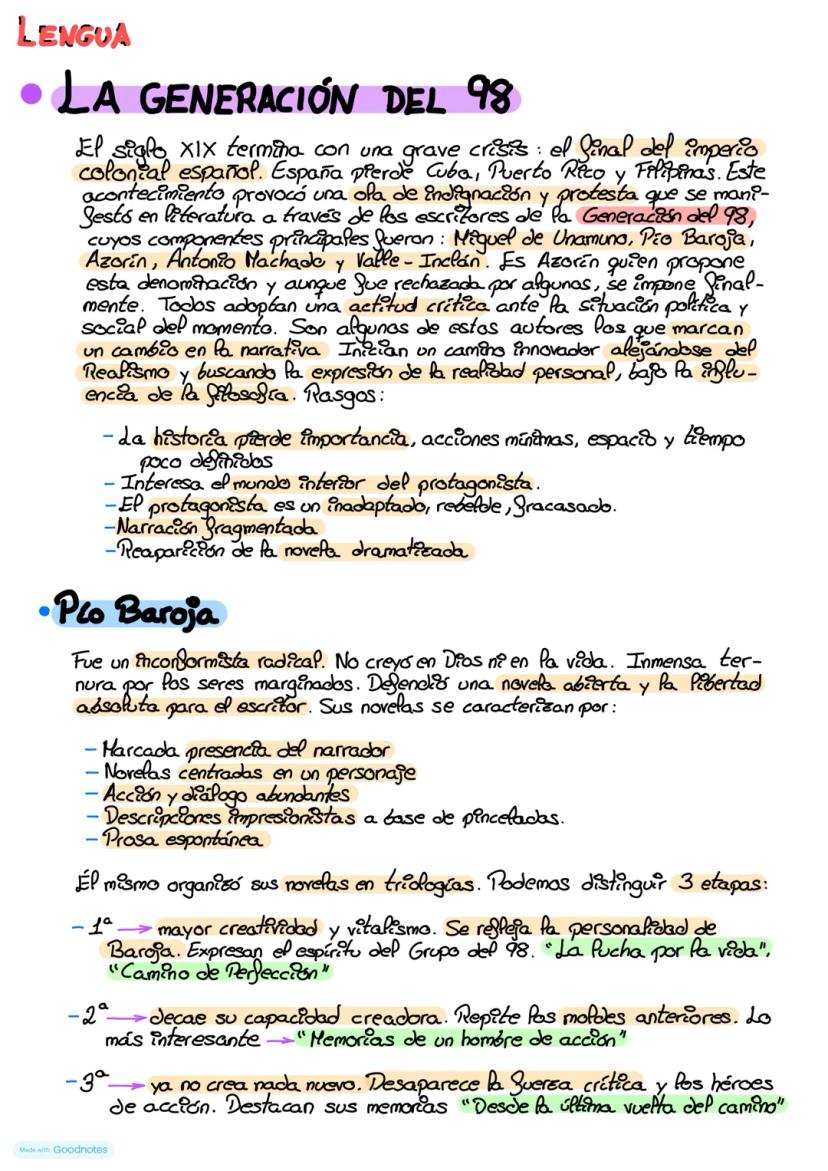 LENGUA
• LA GENERACIÓN DEL 98
El siglo XIX termina con una grave crisis : el final del imperio
colonial español. España pierde Cuba, Puerto Rico y Filipinas. Este
acontecimiento provocó una ola de indignación y protesta que se mani-
festó en literatura a través de los escritores de la Generación del 98,
cuyos componentes principales fueron : Miguel de Unamuno, Pío Baroja,
Azorín, Antonio Machado y Valle-Inclán. Es Azorín quien propone
esta denominación y aunque fue rechazada por algunos, se impone final-
mente. Todos adoptan una actitud crítica ante la situación política y
social del momento. Son algunos de estos autores los que marcan
un cambio en la narrativa Inician un camino innovador alejándose del
Realismo y buscando la expresión de la realidad personal, bajo la influ-
encia de la filosofía. Rasgos:
- La historia pierde importancia, acciones mínimas, espacio y tiempo
poco definidos
- Interesa el mundo interior del protagonista.
- El protagonista es un inadaptado, rebelde, fracasado.
- Narración fragmentada
- Reaparición de la novela dramatizada
• Pío Baroja
Fue un inconformista radical. No creyó en Dios ni en la vida. Inmensa ter-
nura por los seres marginados. Defendió una novela abierta y la libertad
absoluta para el escritor. Sus novelas se caracterizan por:
- Marcada presencia del narrador
- Novelas centradas en un personaje
- Acción y diálogo abundantes
- Descripciones impresionistas a base de pinceladas.
- Prosa espontánea
Él mismo organizó sus novelas en triologías. Podemos distinguir 3 etapas:
- 1ª → mayor creatividad y vitalismo. Se refleja la personalidad de
Baroja. Expresan el espíritu del Grupo del 98. "La lucha por la vida",
"Camino de Perfección"
- 2ª → decae su capacidad creadora. Repite los moldes anteriores. Lo
más interesante → "Memorias de un hombre de acción"
- 3ª → ya no crea nada nuevo. Desaparece la fuerza crítica y los héroes
de acción. Destacan sus memorias "Desde la última vuelta del camino"
Made with Goodnotes